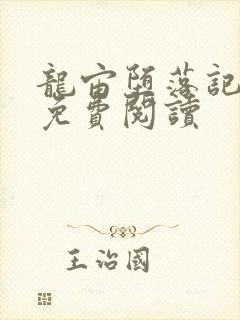 龍宙堕落記
免費閱讀
王治國